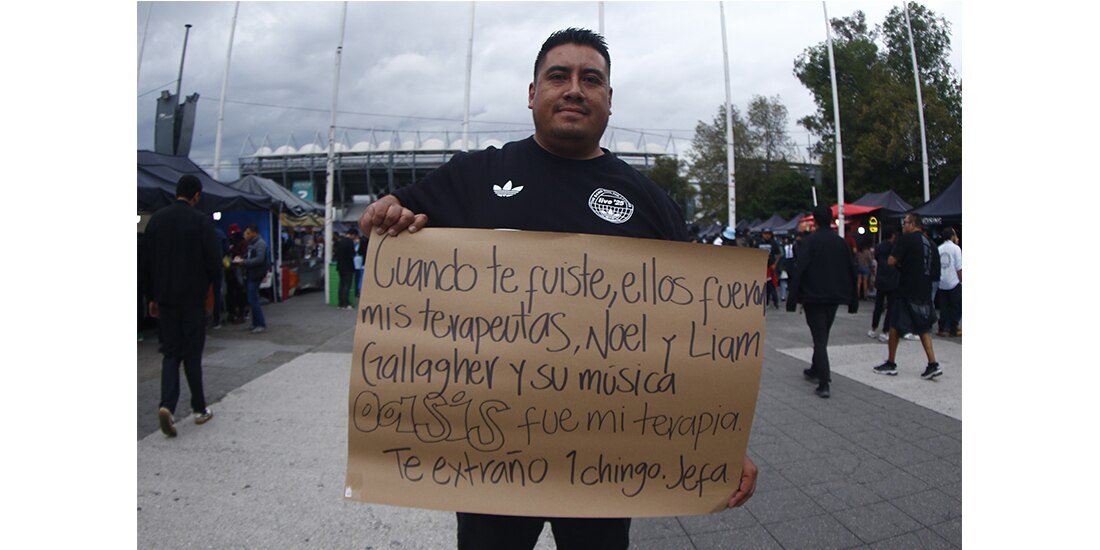 live '25
Cuando te fuiste, ellos fueron
mis terapeutas, Noel y Liam
Gallagher y su música
Oasis fue mi terapia.
Te extraño 1 chingo. Jefa